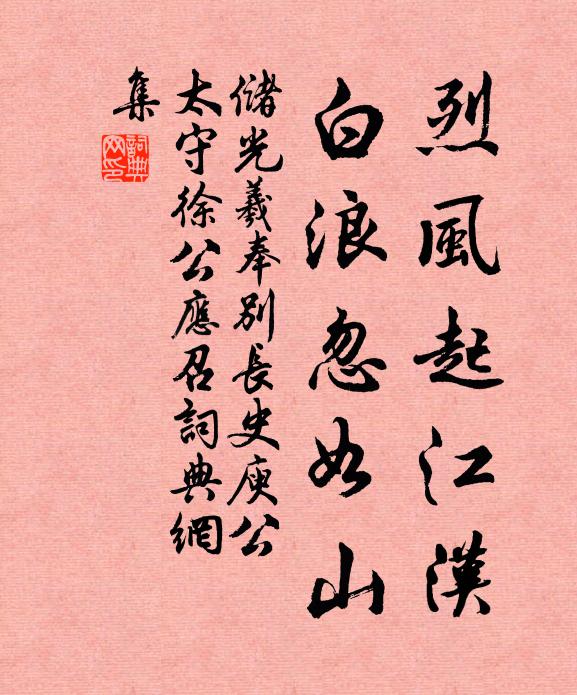 烈風起江漢
白浪忽如山
儲光羲奉別長史庾公
太守徐公應召詞典網
集
詞典
网印